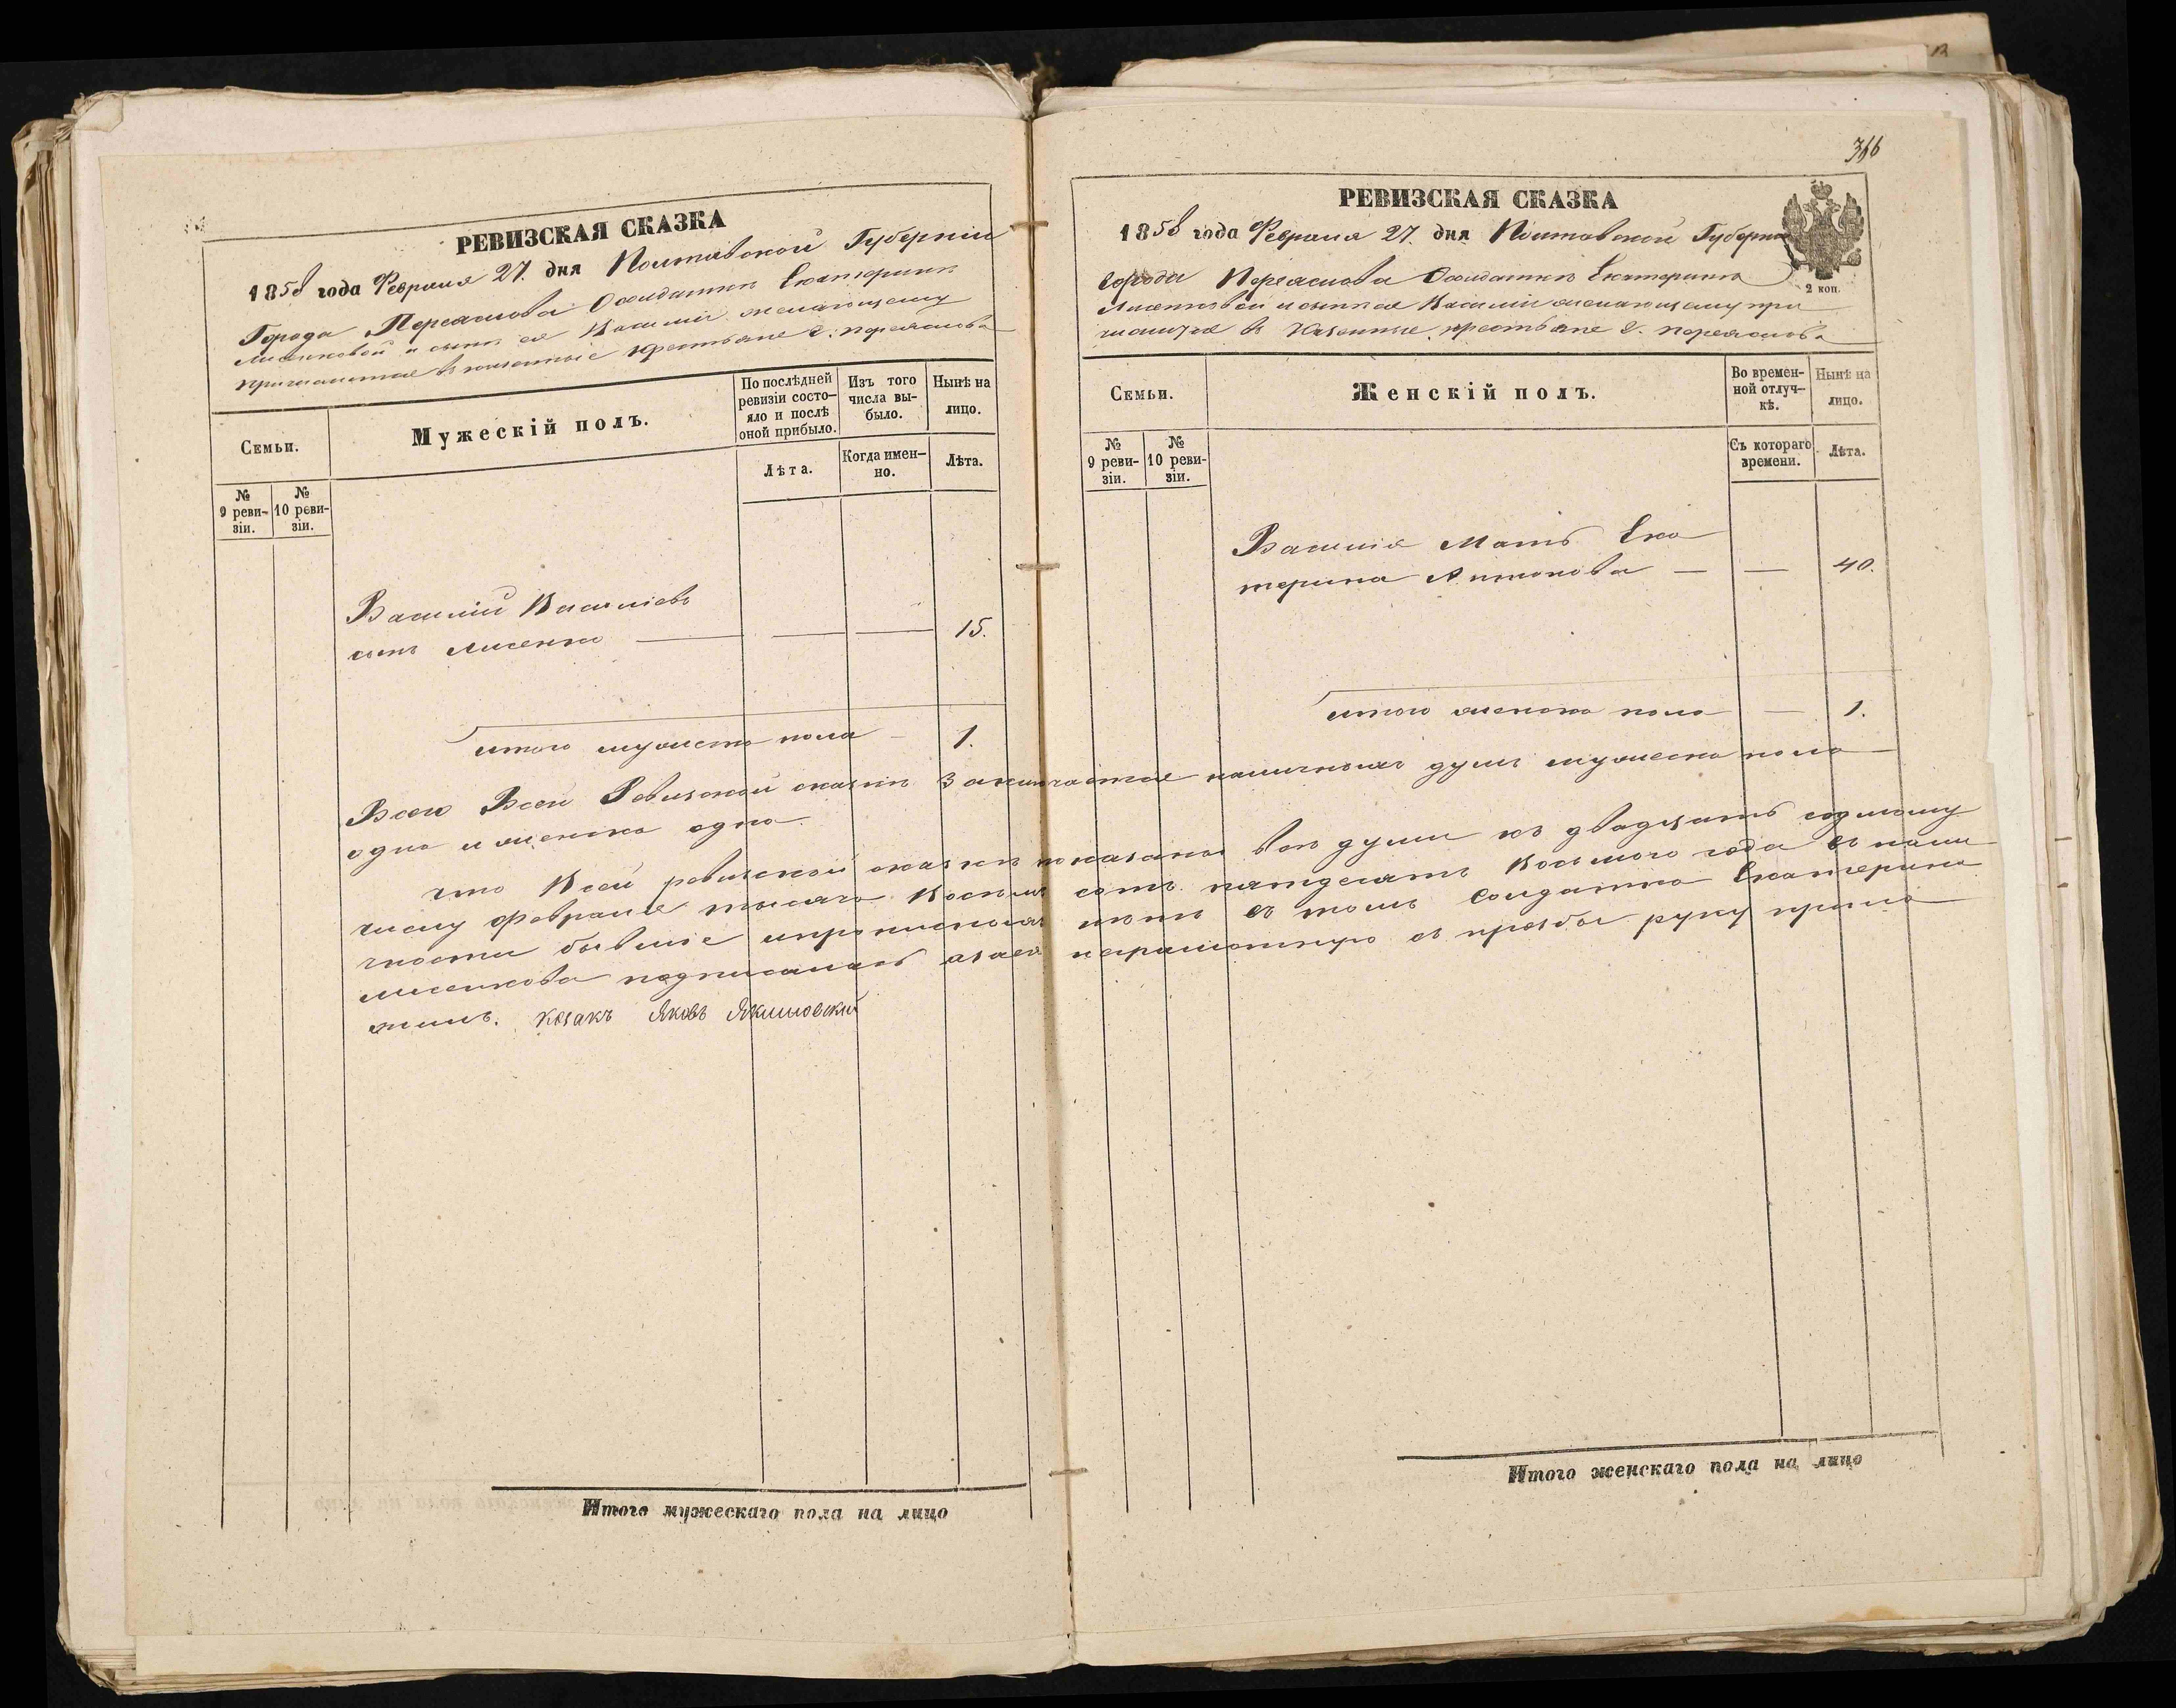 366
РЕВИЗСКАЯ СКАЗКА
1858 года Февраля 27. дня Полтавской Губерніи
Города Переяслова Солдатки Екатерини
Лисенковой и сына ея Василія желающему
причислится в казенніе крестьяне г. Переяслова
Семьи.
Мужескій полъ.
По послѣдней ревизіи состояло и послѣ оной прибыло.
Изъ того числа выбыло.
Нынѣ на лицо.
№ 9 ревизіи.
№ 10 ревизіи.
Лѣта.
Когда именно.
Лѣта.
Василій Василіевъ
сынъ Лисенко — — — 15.
итого мужеска пола — 1.
РЕВИЗСКАЯ СКАЗКА
1858 года Февраля 27. дня Полтавской Губерніи
города Переяслова Солдатки Екатерини
Лисенковой и сына ея Василія желающему при
числится в Казенные крестьяне г. Переяслова
2 коп.
Семьи.
Женскій полъ.
Во временной отлучкѣ.
Нынѣ на лицо.
№ 9 ревизіи.
№ 10 ревизіи.
Съ котораго времени.
Лѣта.
Василія Мать Ека
терина Антонова — — 40.
итого женска пола — 1.
Всего Всей Ревизской сказки Заключается наличныхъ душъ мужеска пола
одна и женска одна.
что Всей ревизской сказки показаны всѣ души къ двадцать седмому
числу февраля тысяча Восемь сотъ пятдесятъ Восьмого года в нали
чности бывшіе и прописныхъ нетъ въ томъ Солдатка Екатерина
Лисенкова подписалась а за ея неграмотную ея прозбы руку прило
жилъ. козакъ Яковъ Якимовскій
Итого мужескаго пола на лицо
Итого женскаго пола на лицо